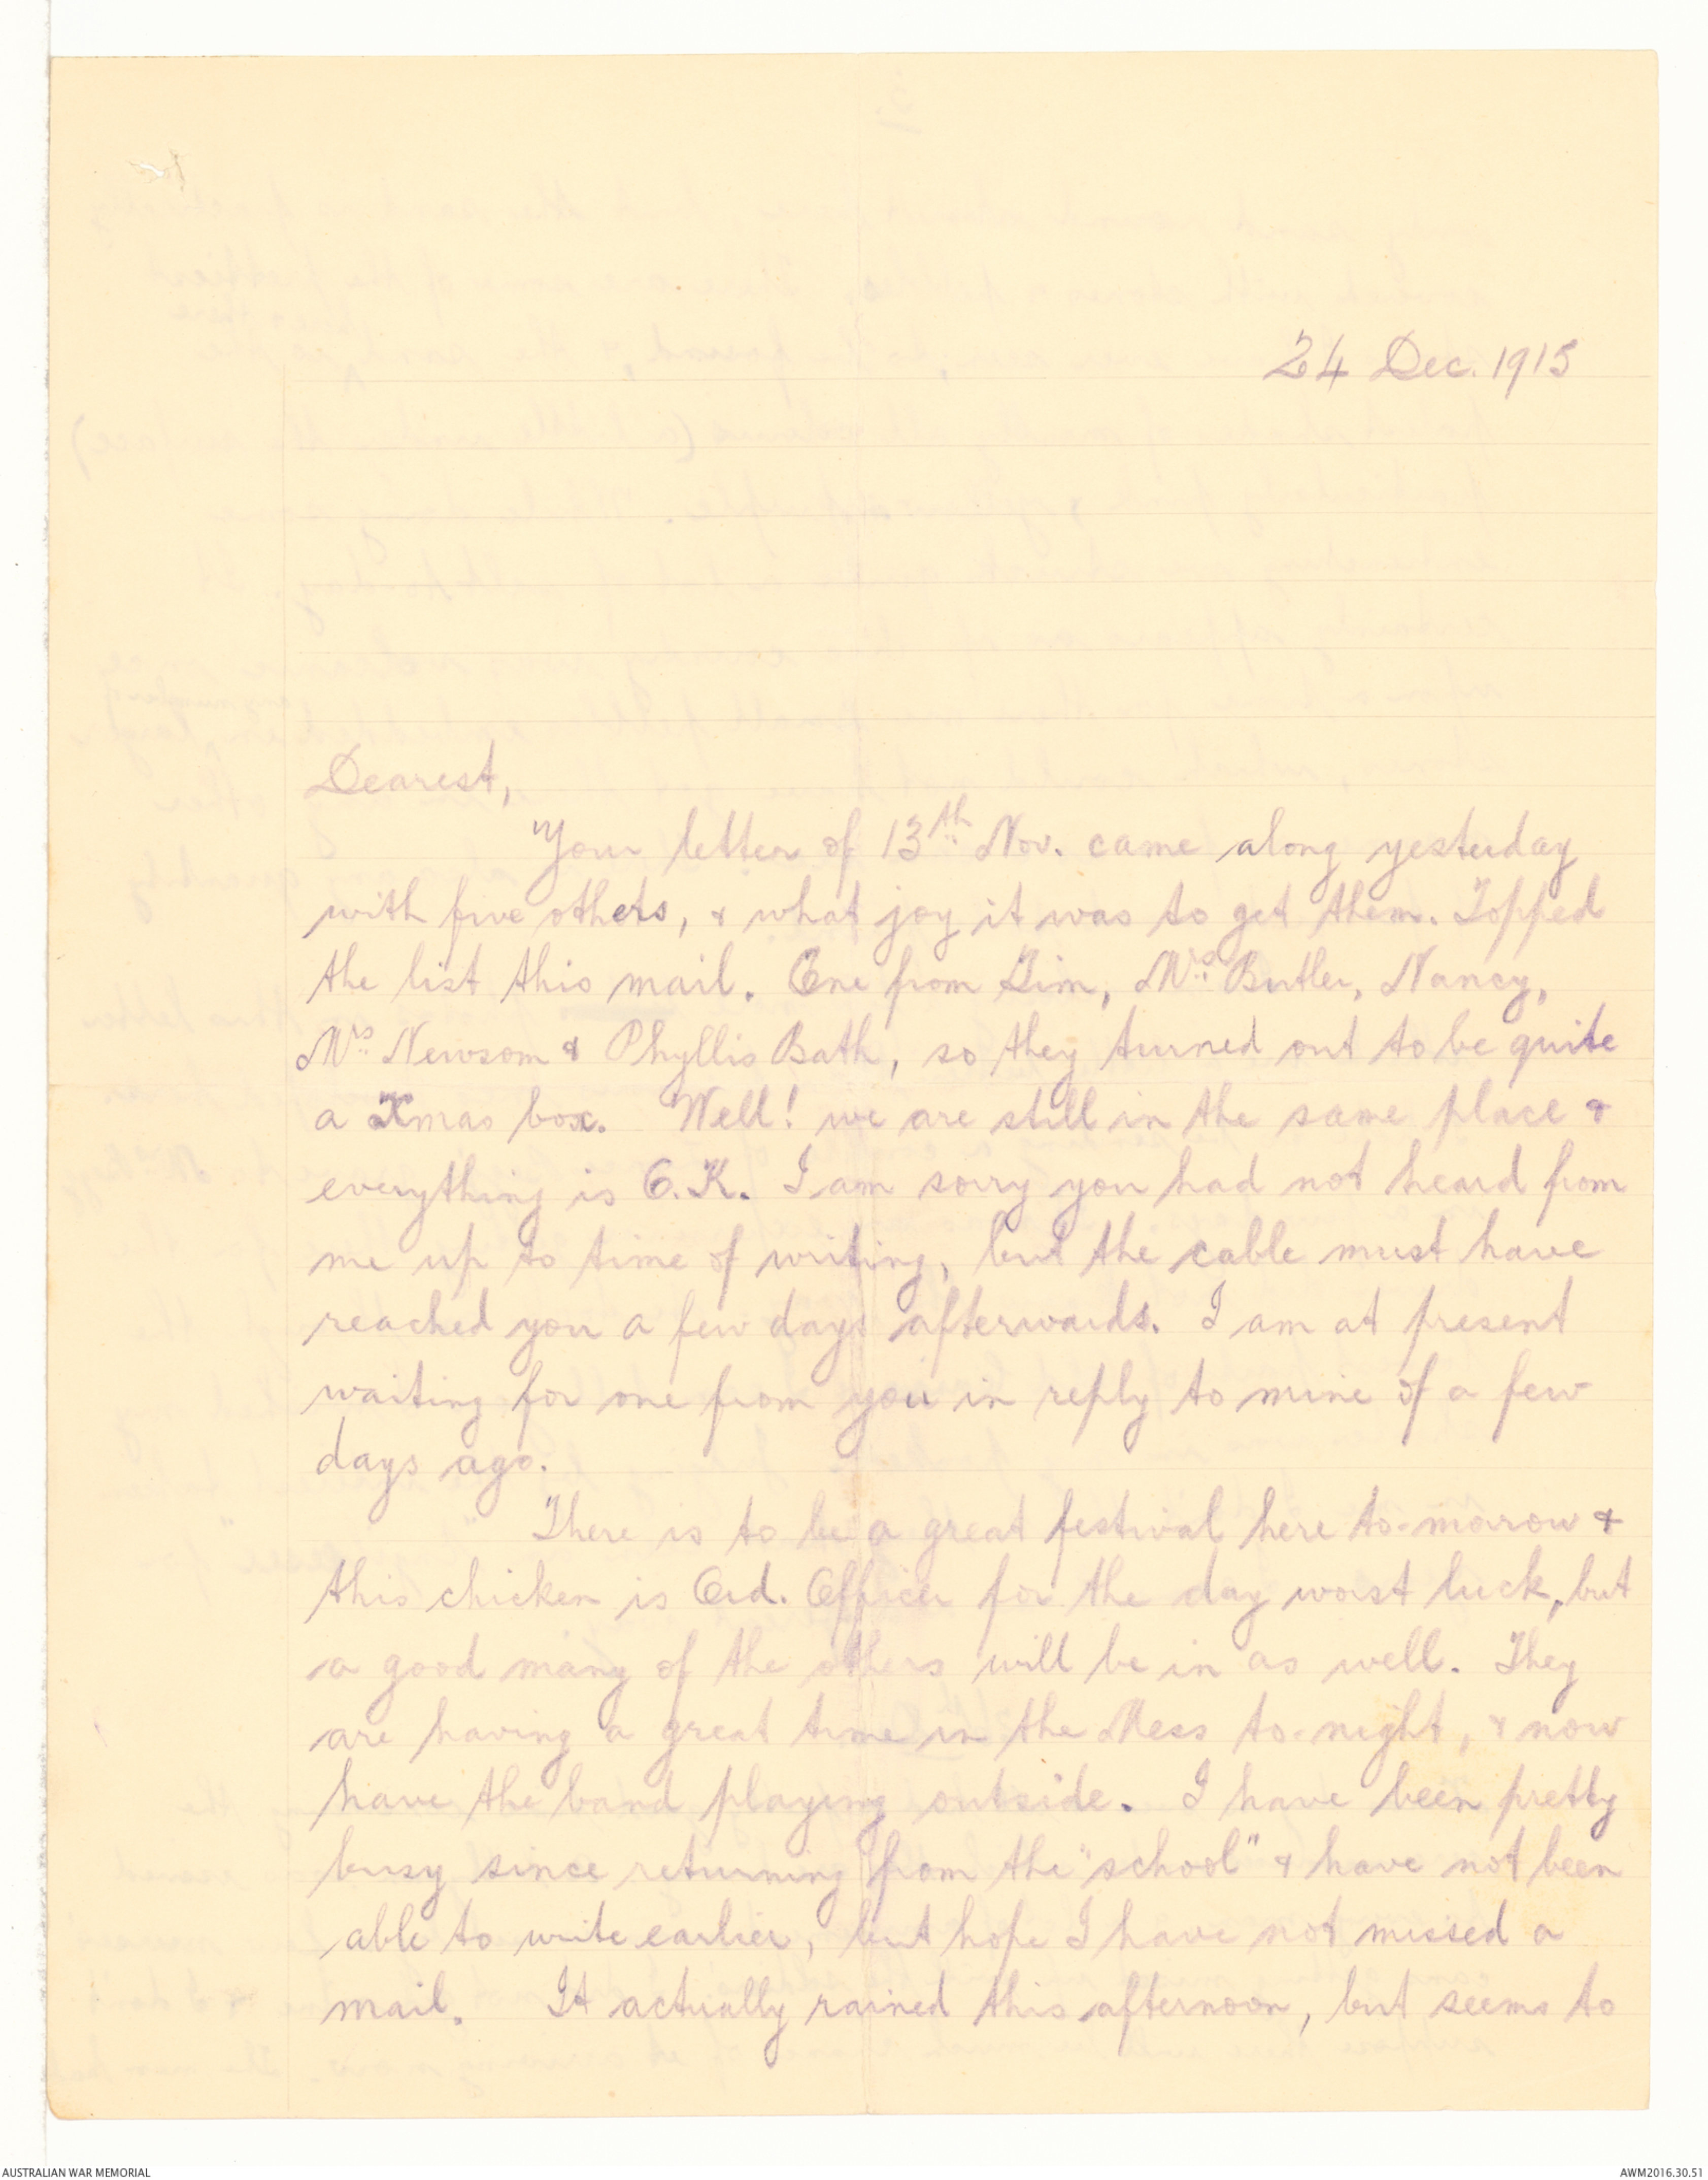 24 Dec. 1915
Dearest,
Your letter of 13th Nov. came along yesterday
with five others, & what joy it was to get them. Topped
the list this mail. One from Sim, Mrs Butler, Nancy,
Mrs Newsom & Phyllis Bath, so they turned out to be quite
a Xmas box. Well! we are still in the same place &
everything is O.K. I am sorry you had not heard from
me up to time of writing, but the cable must have
reached you a few days afterwards. I am at present
waiting for one from you in reply to mine of a few
days ago.
There is to be a great festival here to-morrow &
this chicken is Ord. Officer for the day worst luck, but
a good many of the others will be in as well. They
are having a great time in the Mess to-night, & now
have the band playing outside. I have been pretty
busy since returning from the "school" & have not been
able to write earlier, but hope I have not missed a
mail. It actually rained this afternoon, but seems to
AUSTRALIAN WAR MEMORIAL
AWM2016.30.51